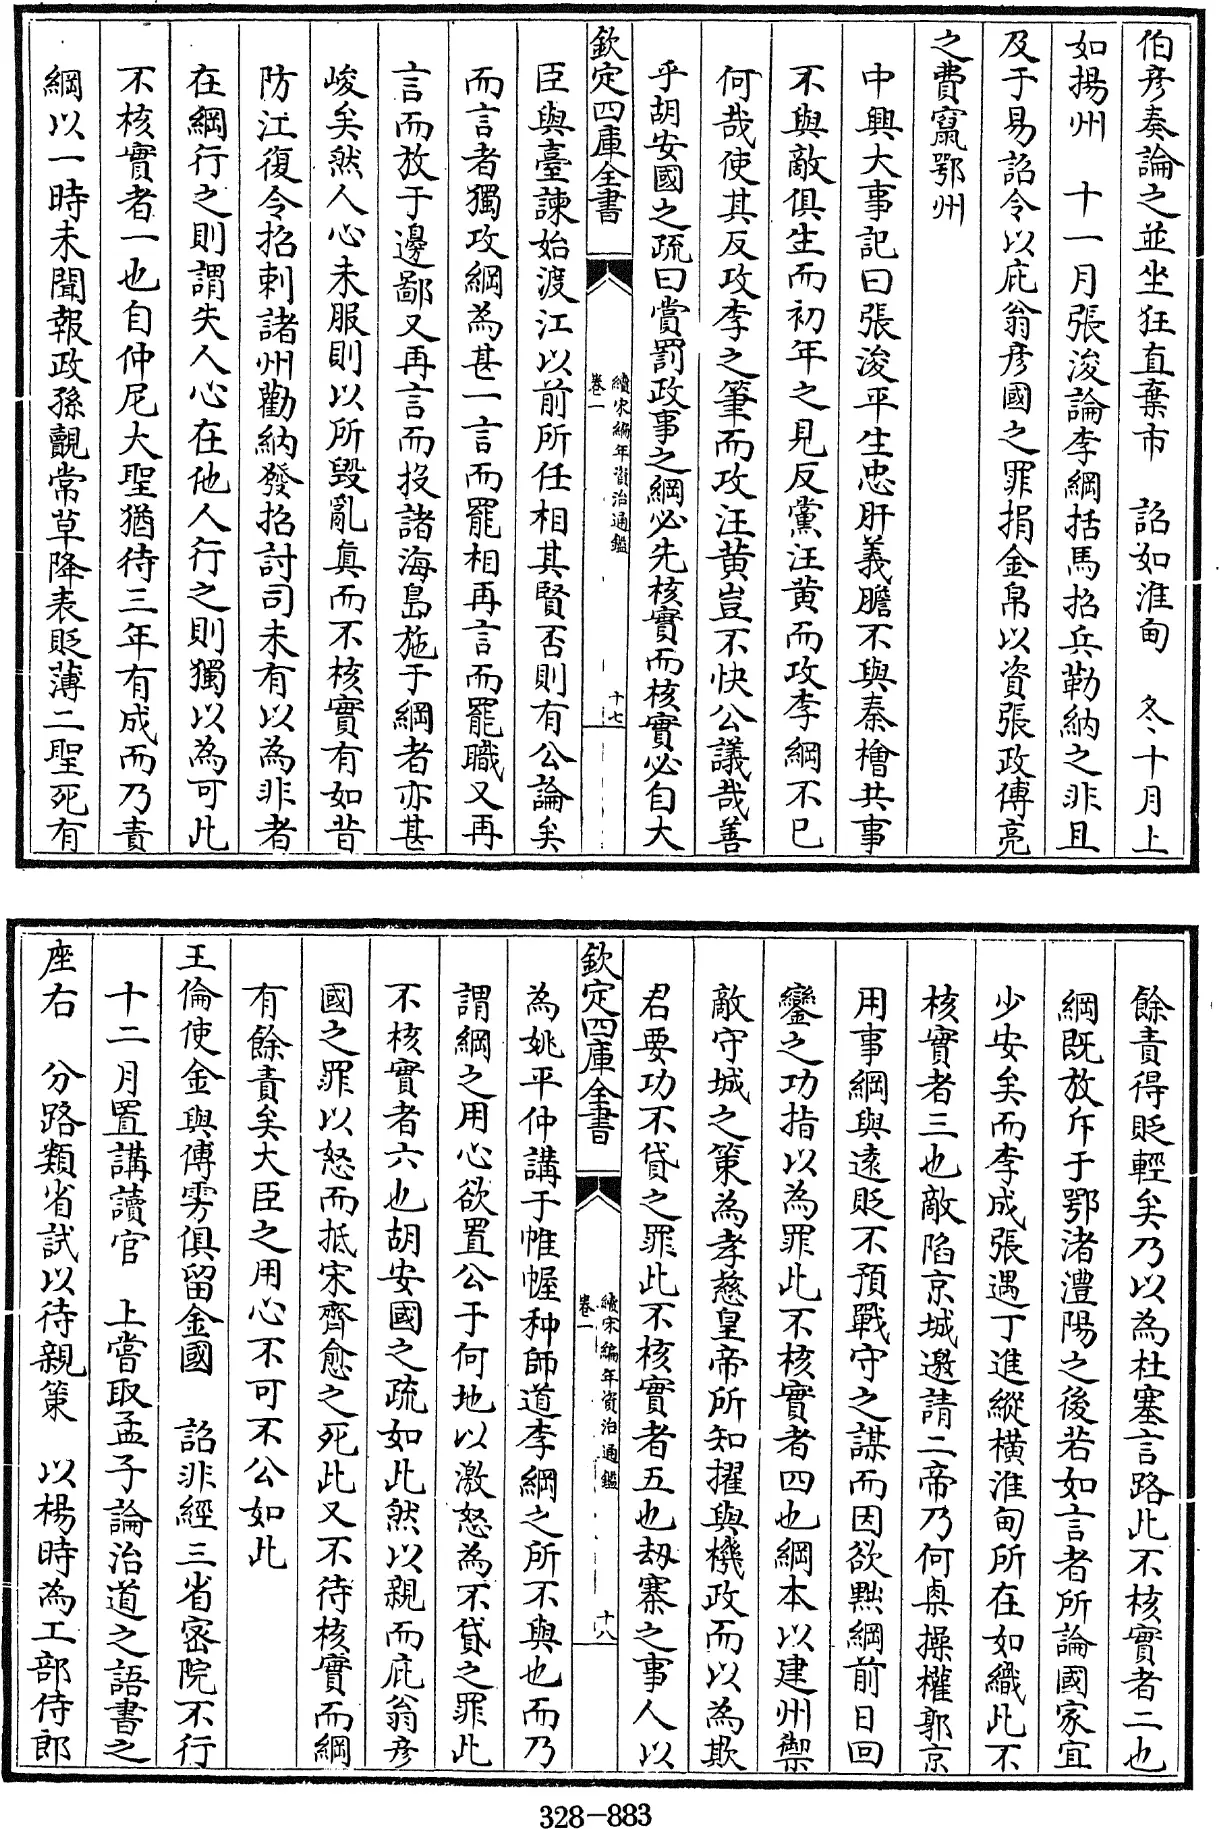 伯彦奏論之並坐狂直棄市　詔如淮甸　冬十月上
如揚州　十一月張浚論李綱括馬招兵勒納之非且
及于易詔令以庇翁彦國之罪捐金帛以資張政傅亮
之費竄鄂州
中興大事記曰張浚平生忠肝義膽不與秦檜共事
不與敵俱生而初年之見反黨汪黄而攻李綱不已
何哉使其反攻李之筆而攻汪黄豈不快公議哉善
乎胡安國之疏曰賞罰政事之綱必先核實而核實必自大
欽定四庫全書
續宋編年資治通鑑
卷一
十七
臣與臺諫始渡江以前所任相其賢否則有公論矣
而言者獨攻綱為甚一言而罷相再言而罷職又再
言而放于邊鄙又再言而投諸海島施于綱者亦甚
峻矣然人心未服則以所毀亂真而不核實有如昔
防江復令招刺諸州勸納發招討司未有以為非者
在綱行之則謂失人心在他人行之則獨以為可此
不核實者一也自仲尼大聖猶待三年有成而乃責
綱以一時未聞報政孫覿常草降表貶薄二聖死有
餘責得貶輕矣乃以為杜塞言路此不核實者二也
綱既放斥于鄂渚澧陽之後若如言者所論國家宜
少安矣而李成張遇丁進縱横淮甸所在如織此不
核實者三也敵陷京城邀請二帝乃何㮚操權郭京
用事綱與遠貶不預戰守之謀而因欲黜綱前日回
鑾之功指以為罪此不核實者四也綱本以建州禦
敵守城之策為孝慈皇帝所知擢與機政而以為欺
君要功不貸之罪此不核實者五也刼寨之事人以
欽定四庫全書
續宋編年資治通鑑
卷一
十八
為姚平仲講于帷幄种師道李綱之所不與也而乃
謂綱之用心欲置公于何地以激怒為不貸之罪此
不核實者六也胡安國之疏如此然以親而庇翁彦
國之罪以怒而抵宋齊愈之死此又不待核實而綱
有餘責矣大臣之用心不可不公如此
王倫使金與傅雱俱留金國　詔非經三省密院不行
十二月置講讀官　上嘗取孟子論治道之語書之
座右　分路類省試以待親策　以楊時為工部侍郎
328-883